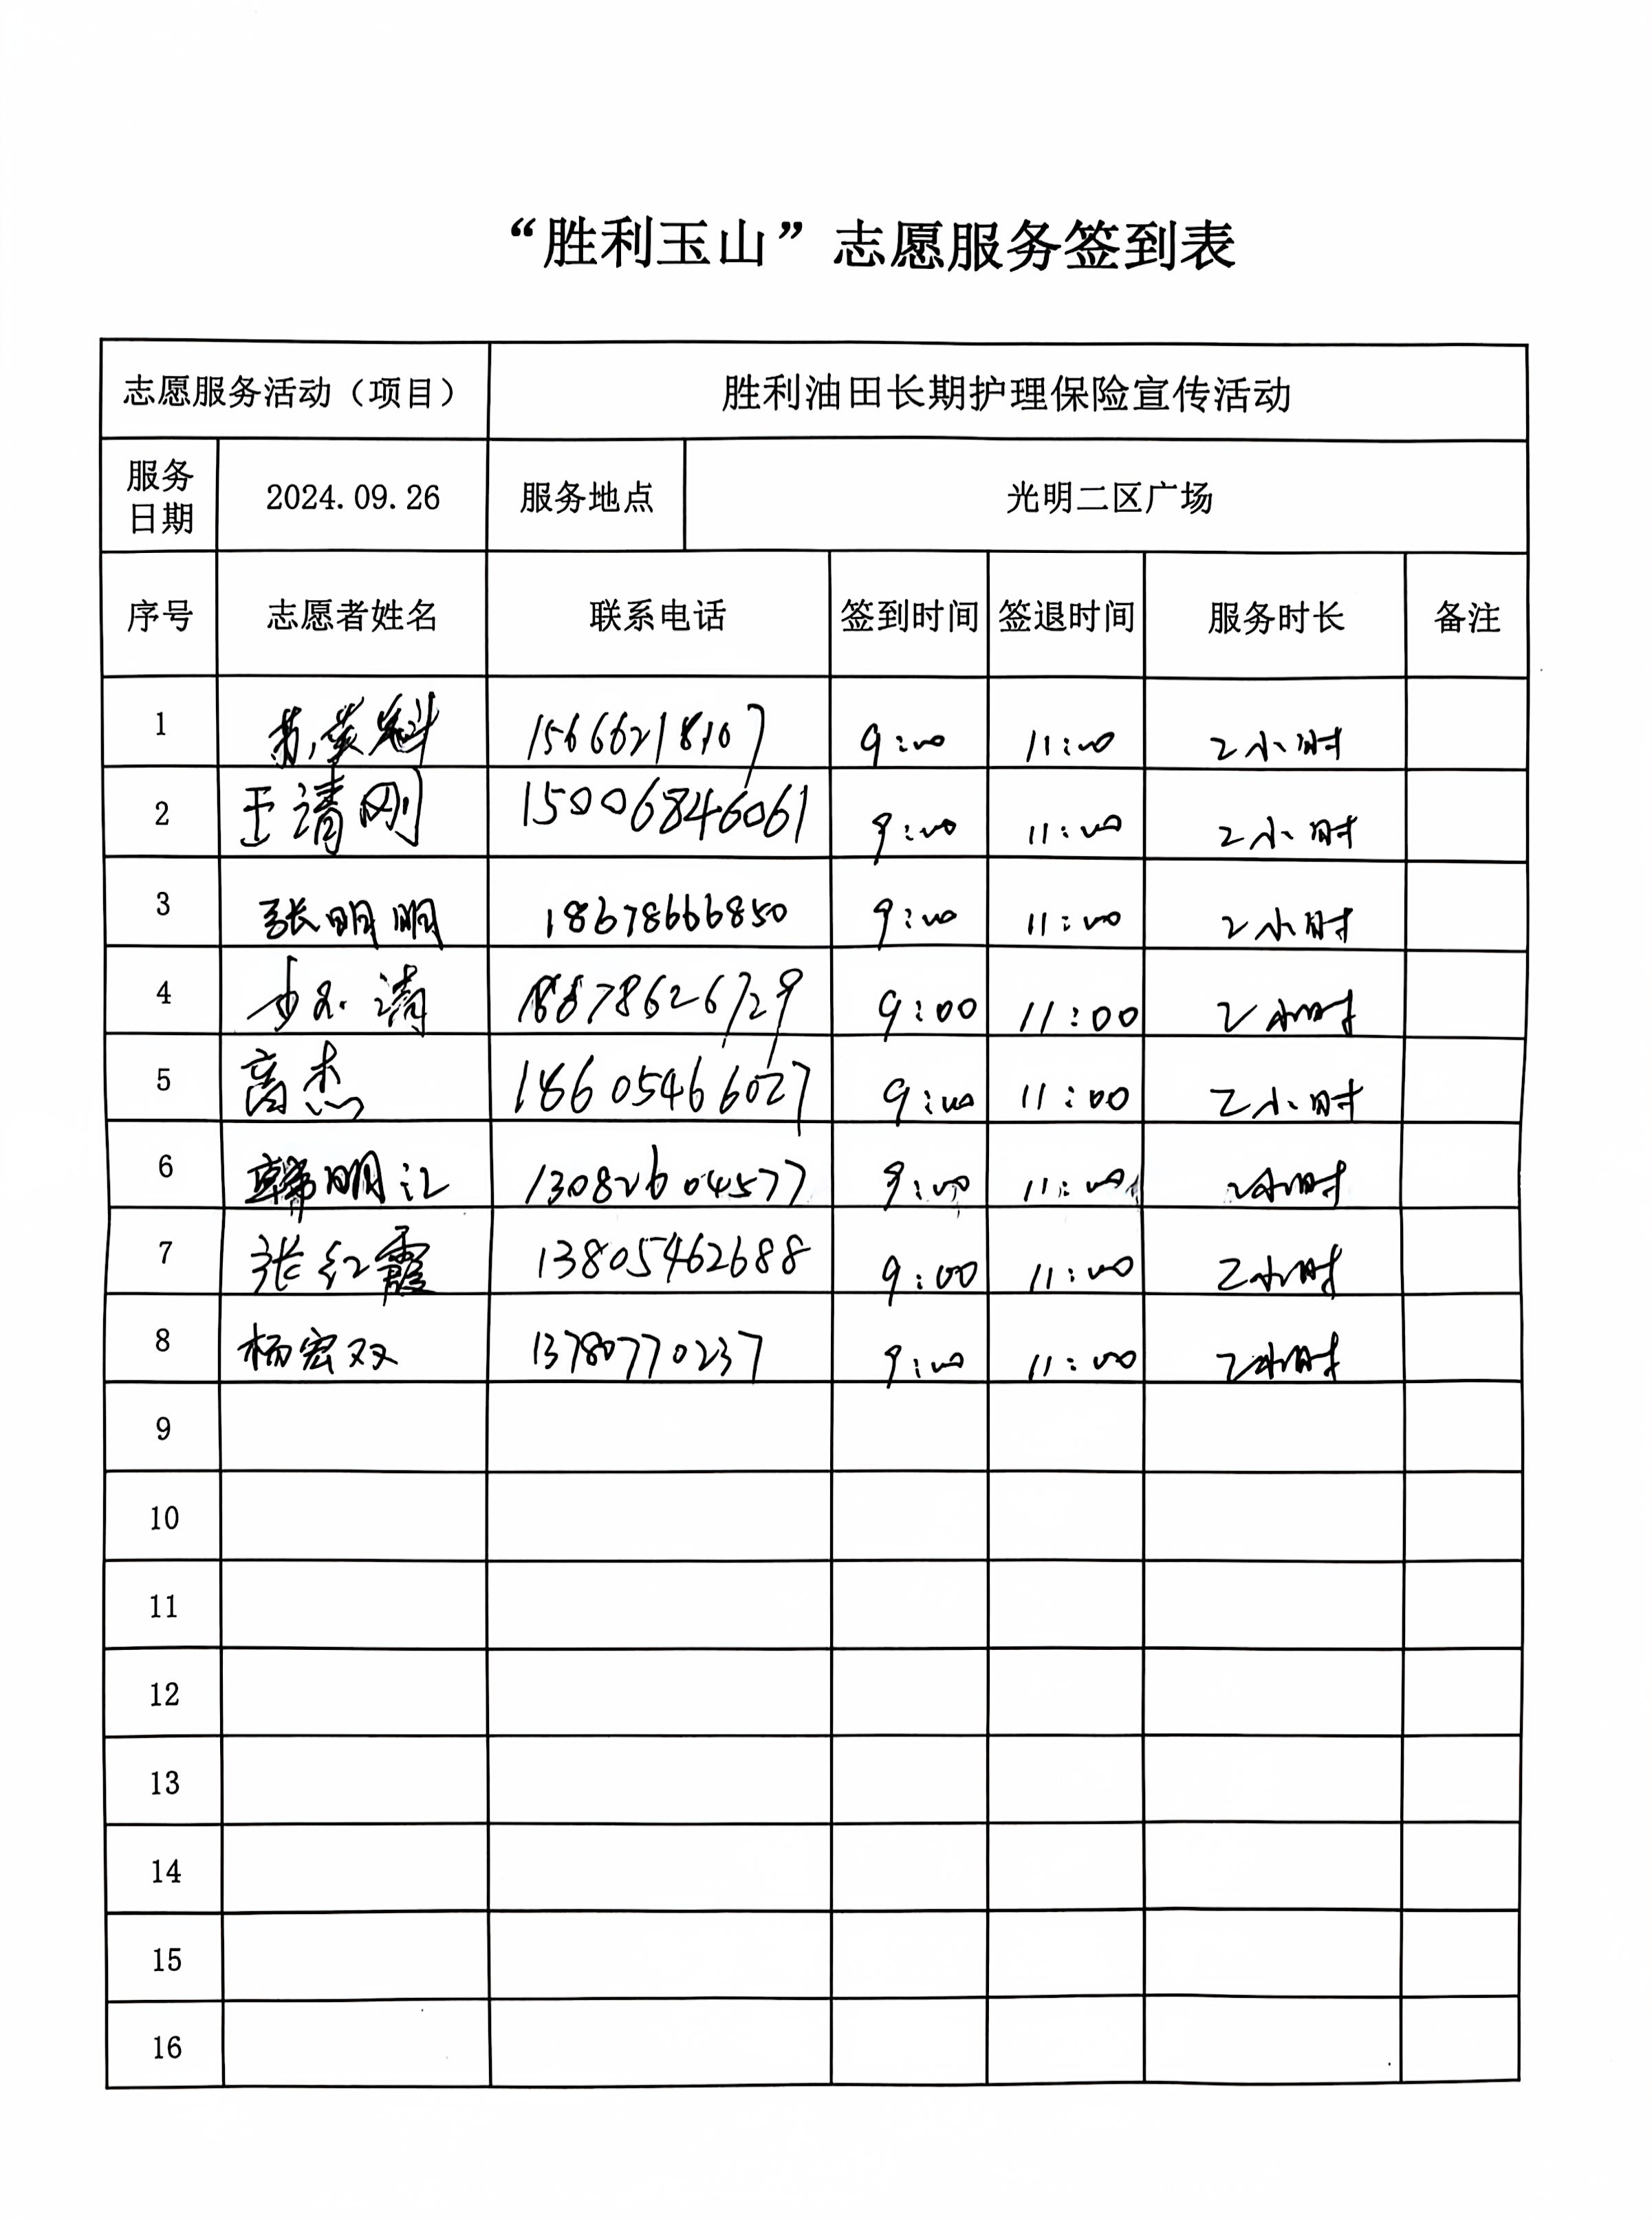 “胜利玉山”志愿服务签到表
志愿服务活动（项目） 胜利油田长期护理保险宣传活动
服务日期 2024.09.26 服务地点 光明二区广场
序号 志愿者姓名 联系电话 签到时间 签退时间 服务时长 备注
1 15666218107 9:00 11:00 2小时
2 王请刚 15006846061 9:00 11:00 2小时
3 张明明 18678666850 9:00 11:00 2小时
4 9:00 11:00 2小时
5 高杰 18605466027 9:00 11:00 2小时
6 韩明江 13082604577 9:00 11:00 2小时
7 张红霞 13805462688 9:00 11:00 2小时
8 杨宏双 13780770237 9:00 11:00 2小时
9
10
11
12
13
14
15
16